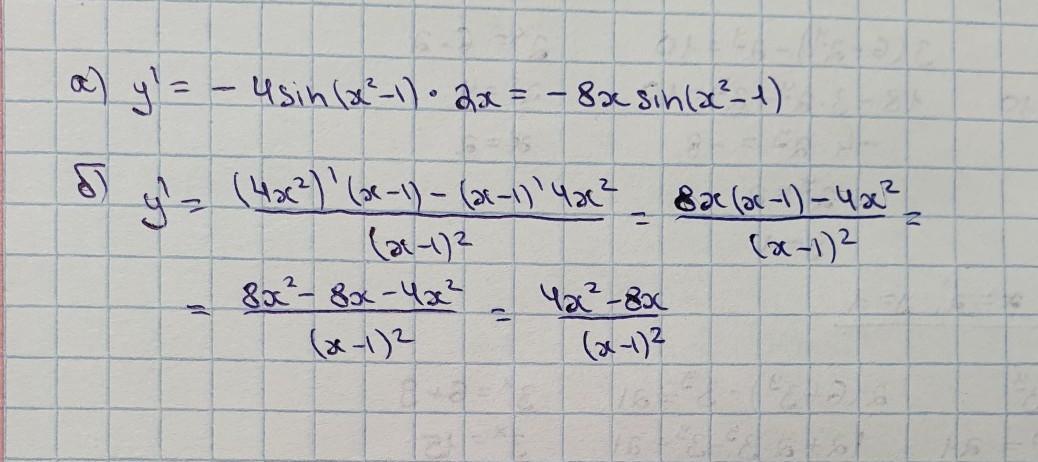 а) y' = - 4sin(x²-1) · 2x = - 8x sin(x²-1)
б) y' = ((4x²)'(x-1) - (x-1)'4x²)/(x-1)² = (8x(x-1) - 4x²)/(x-1)² =
= (8x² - 8x - 4x²)/(x-1)² = (4x² - 8x)/(x-1)²